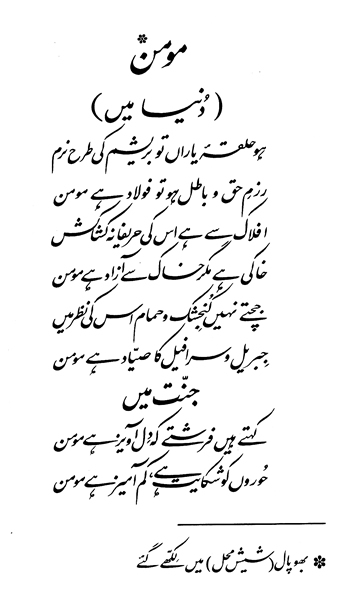 مومن*
(دُنیا میں)
ہو حلقۂ یاراں تو بریشم کی طرح نرم
رزمِ حق و باطل ہو تو فولاد ہے مومن
افلاک سے ہے اس کی حریفانہ کشاکش
خاکی ہے مگر خاک سے آزاد ہے مومن
جچتے نہیں کُنجشک و حمام اس کی نظر میں
جِبریل و سرافیل کا صیّاد ہے مومن
جنّت میں
کہتے ہیں فرشتے کہ دِل آویز ہے مومن
حُوروں کو شکایت ہے، کم آمیز ہے مومن
* بھوپال (شیش محل) میں لِکھّے گئے